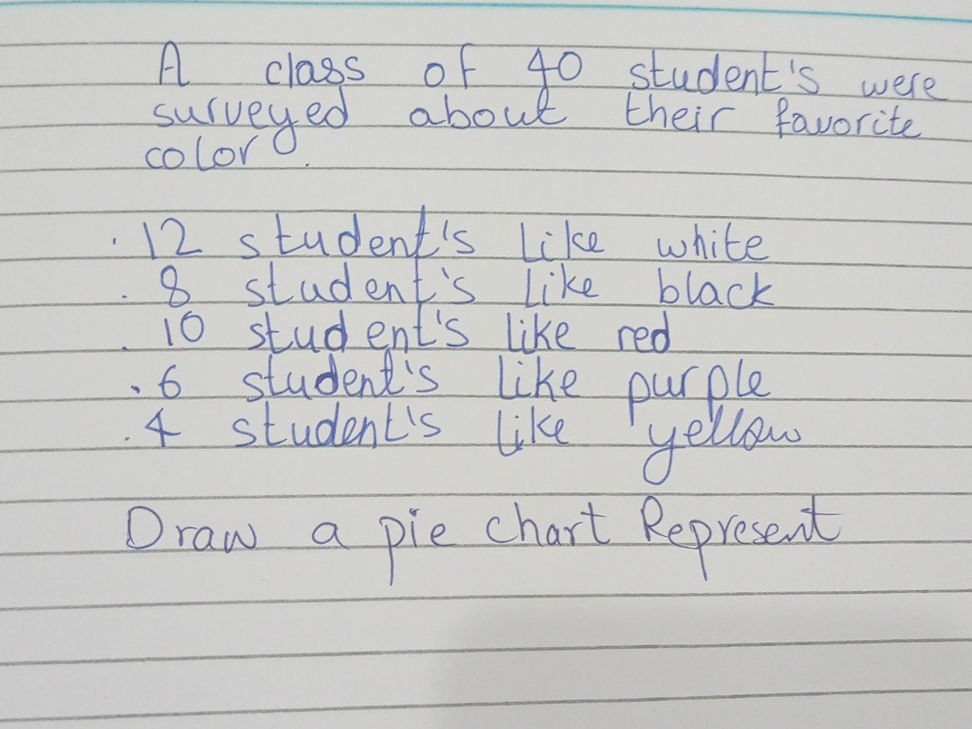 A class of 40 student's were
surveyed about their favorite
color.
. 12 student's like white
. 8 student's like black
. 10 student's like red
. 6 student's like purple
. 4 student's like yellow
Draw a pie chart Represent